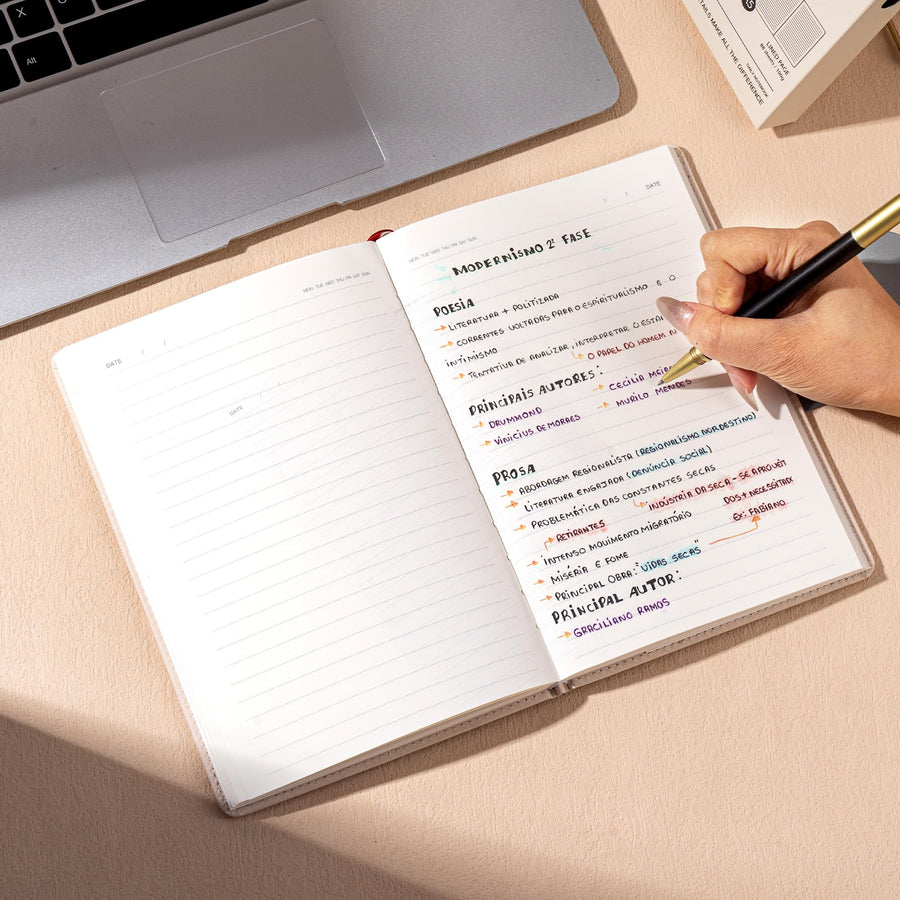 X
Alt
LINED PAGE
DETAILS MAKE ALL THE DIFFERENCE
DATE / /
MON TUE WED THU FRI SAT SUN
DATE /
MON TUE WED THU FRI SAT SUN
/ / DATE
MODERNISMO 2ª FASE
POESIA
→ LITERATURA + POLITIZADA
→ CORRENTES VOLTADAS PARA O ESPIRITUALISMO E O
INTIMISMO
→ TENTATIVA DE ANALIZAR, INTERPRETAR O
O PAPEL DO HOMEM
PRINCIPAIS AUTORES:
→ DRUMMOND → CECILIA
→ VINICIUS DE MORAES → MURILO MENDES
PROSA
→ ABORDAGEM REGIONALISTA (REGIONALISMO NORDESTINO)
→ LITERATURA ENGAJADA (DENÚNCIA SOCIAL)
→ PROBLEMÁTICA DAS CONSTANTES SECAS
INDÚSTRIA DA SECA - SE
RETIRANTES DOS +
→ INTENSO MOVIMENTO MIGRATÓRIO EX: FABIANO
→ MISÉRIA E FOME
→ PRINCIPAL OBRA: "VIDAS SECAS"
PRINCIPAL AUTOR:
→ GRACILIANO RAMOS